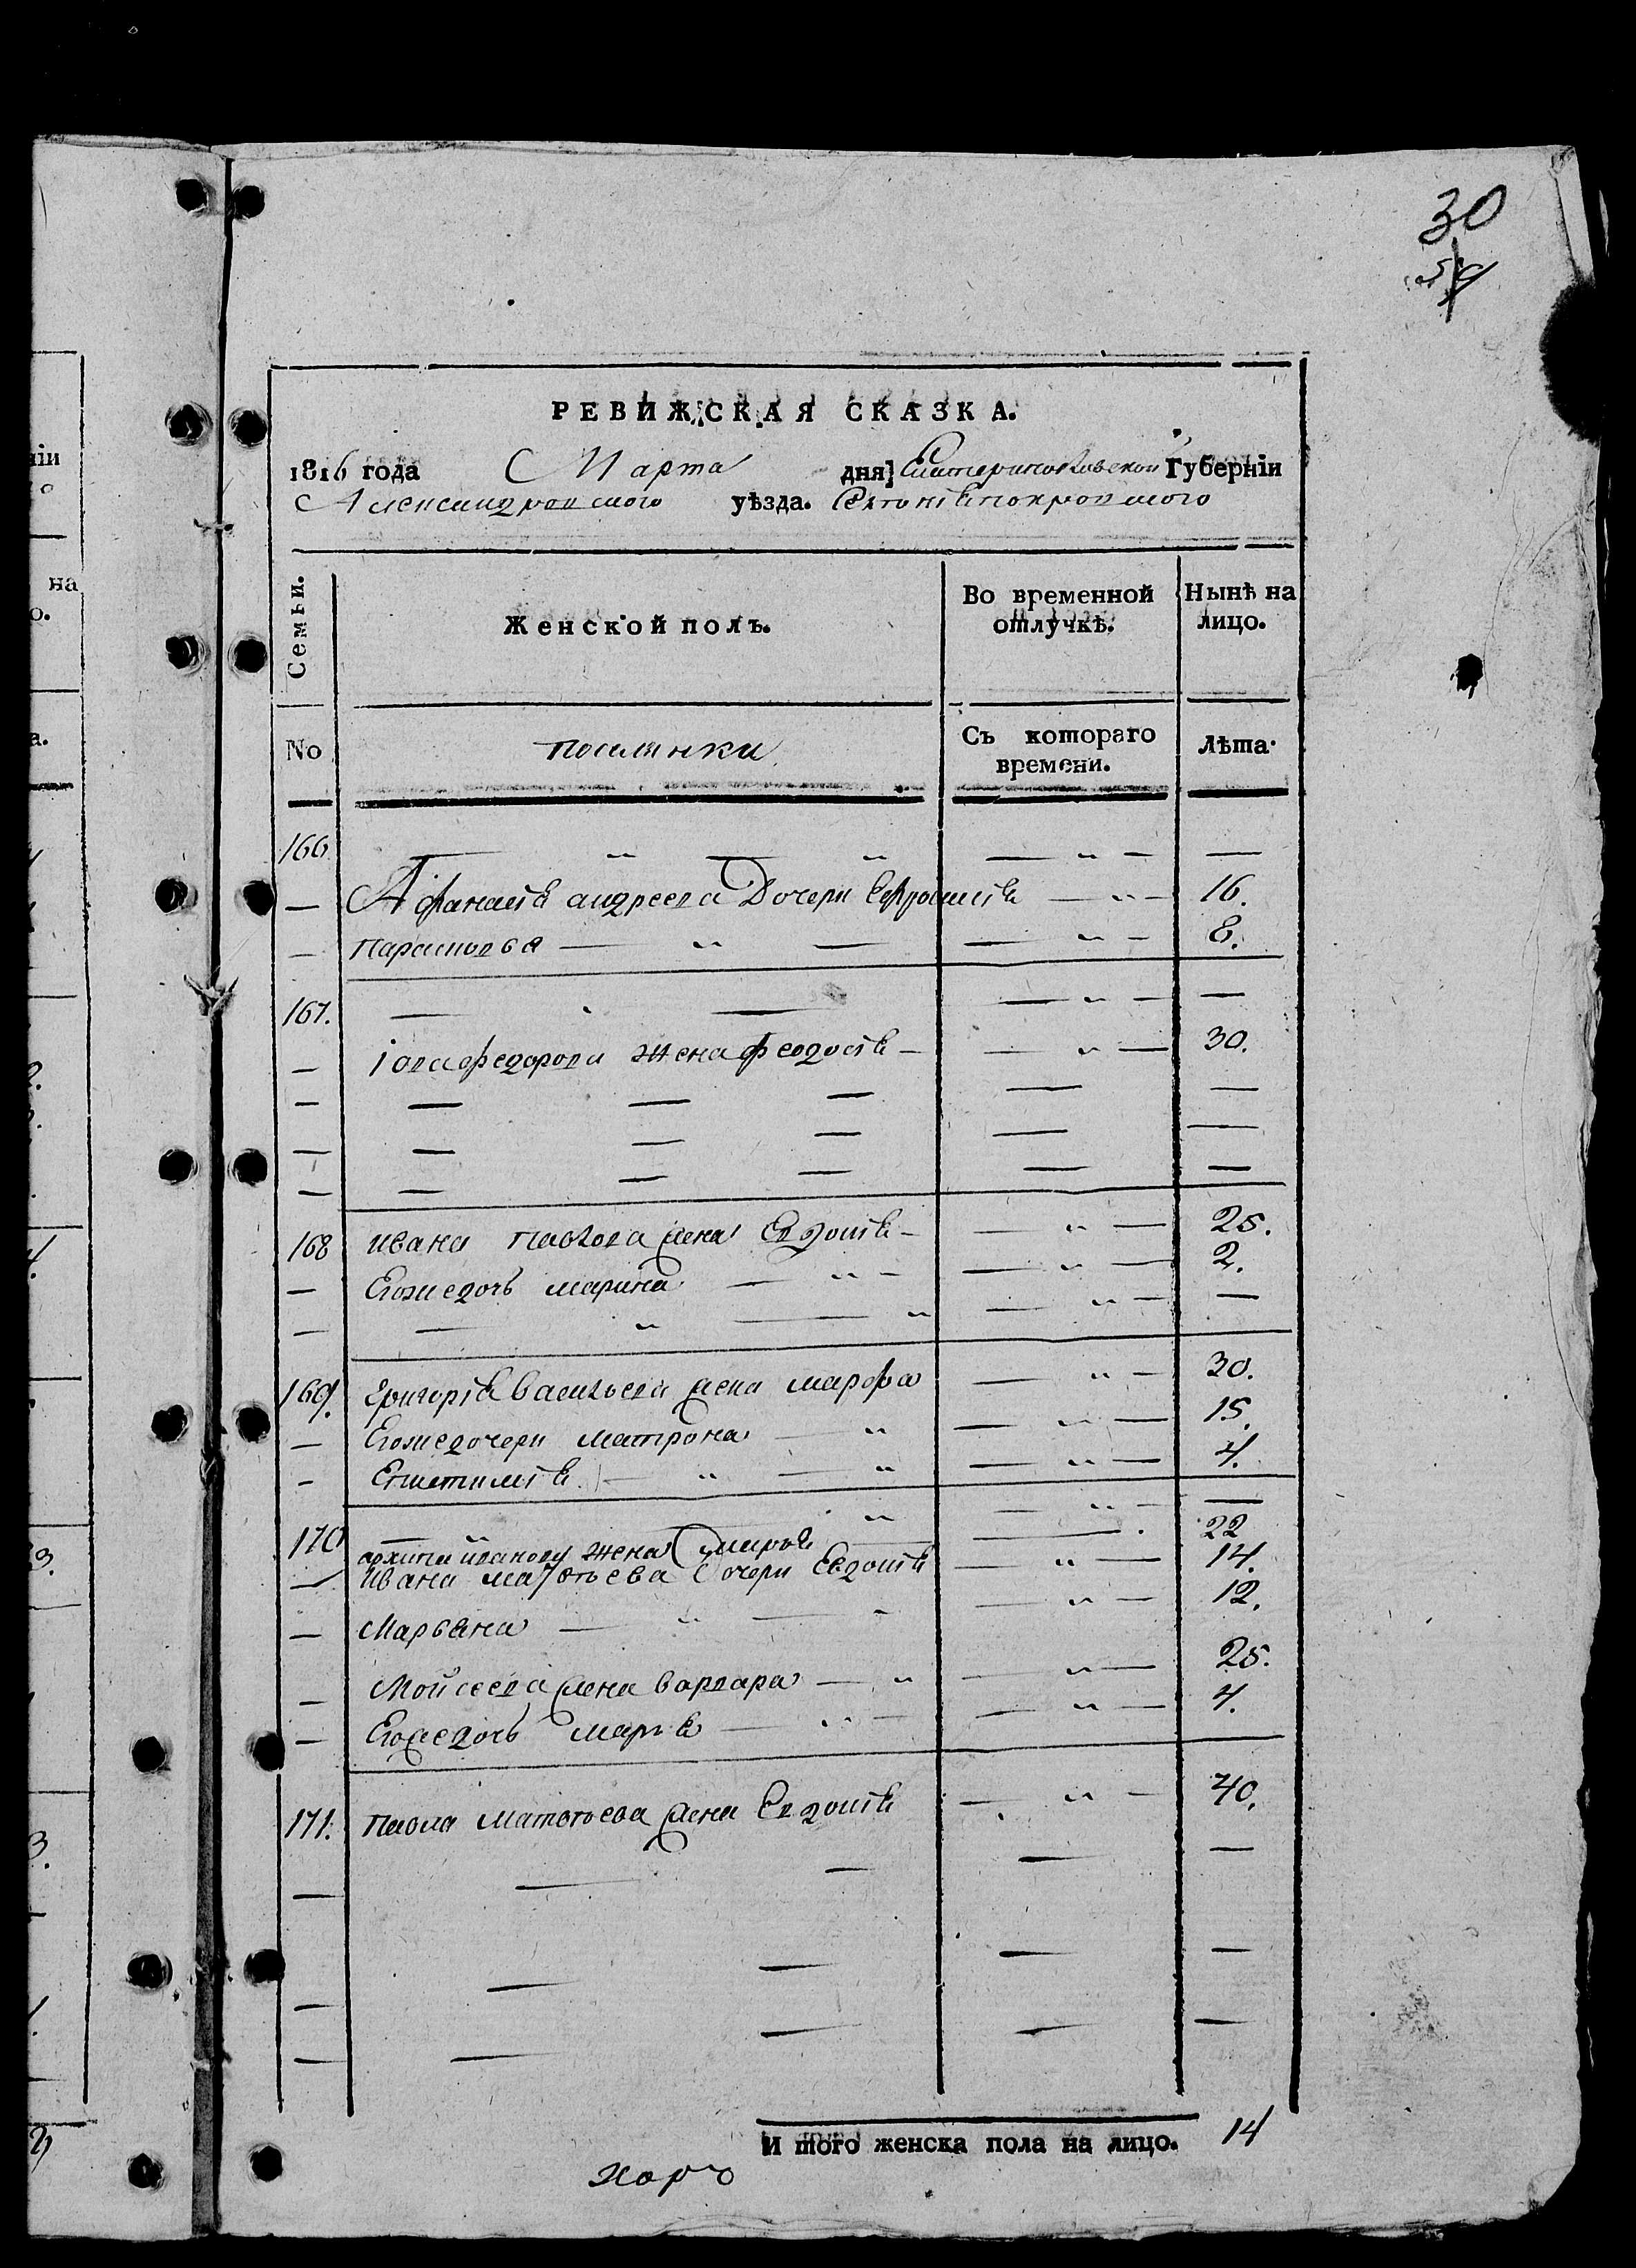 30
РЕВИЖСКАЯ СКАЗКА.
1816 года Марта дня Екатеринославской Губерніи
Александровского уѣзда.
Семьи.
Женской полъ.
Во временной отлучкѣ.
Нынѣ на лицо.
No
поселянки
Съ котораго времени.
Лѣта.
166
Афанасія андреева Дочери Ефросинія 16.
парасковья 8.
167.
іова федорова жена феодосія 30.
168 ивана павлова жена Евдокія 25.
Егоже дочь марина 2.
169. григорія васильева жена марфа 30.
Егоже дочери матрона 15.
Епистимія 4.
170
архипа иванова жена 22
ивана матвѣева дочери Евдокія 14.
Марьяна 12.
Мойсеева жена варвара 25.
Егоже дочь марія 4.
171. павла матвѣева жена Евдокія 40.
И того женска пола на лицо. 14